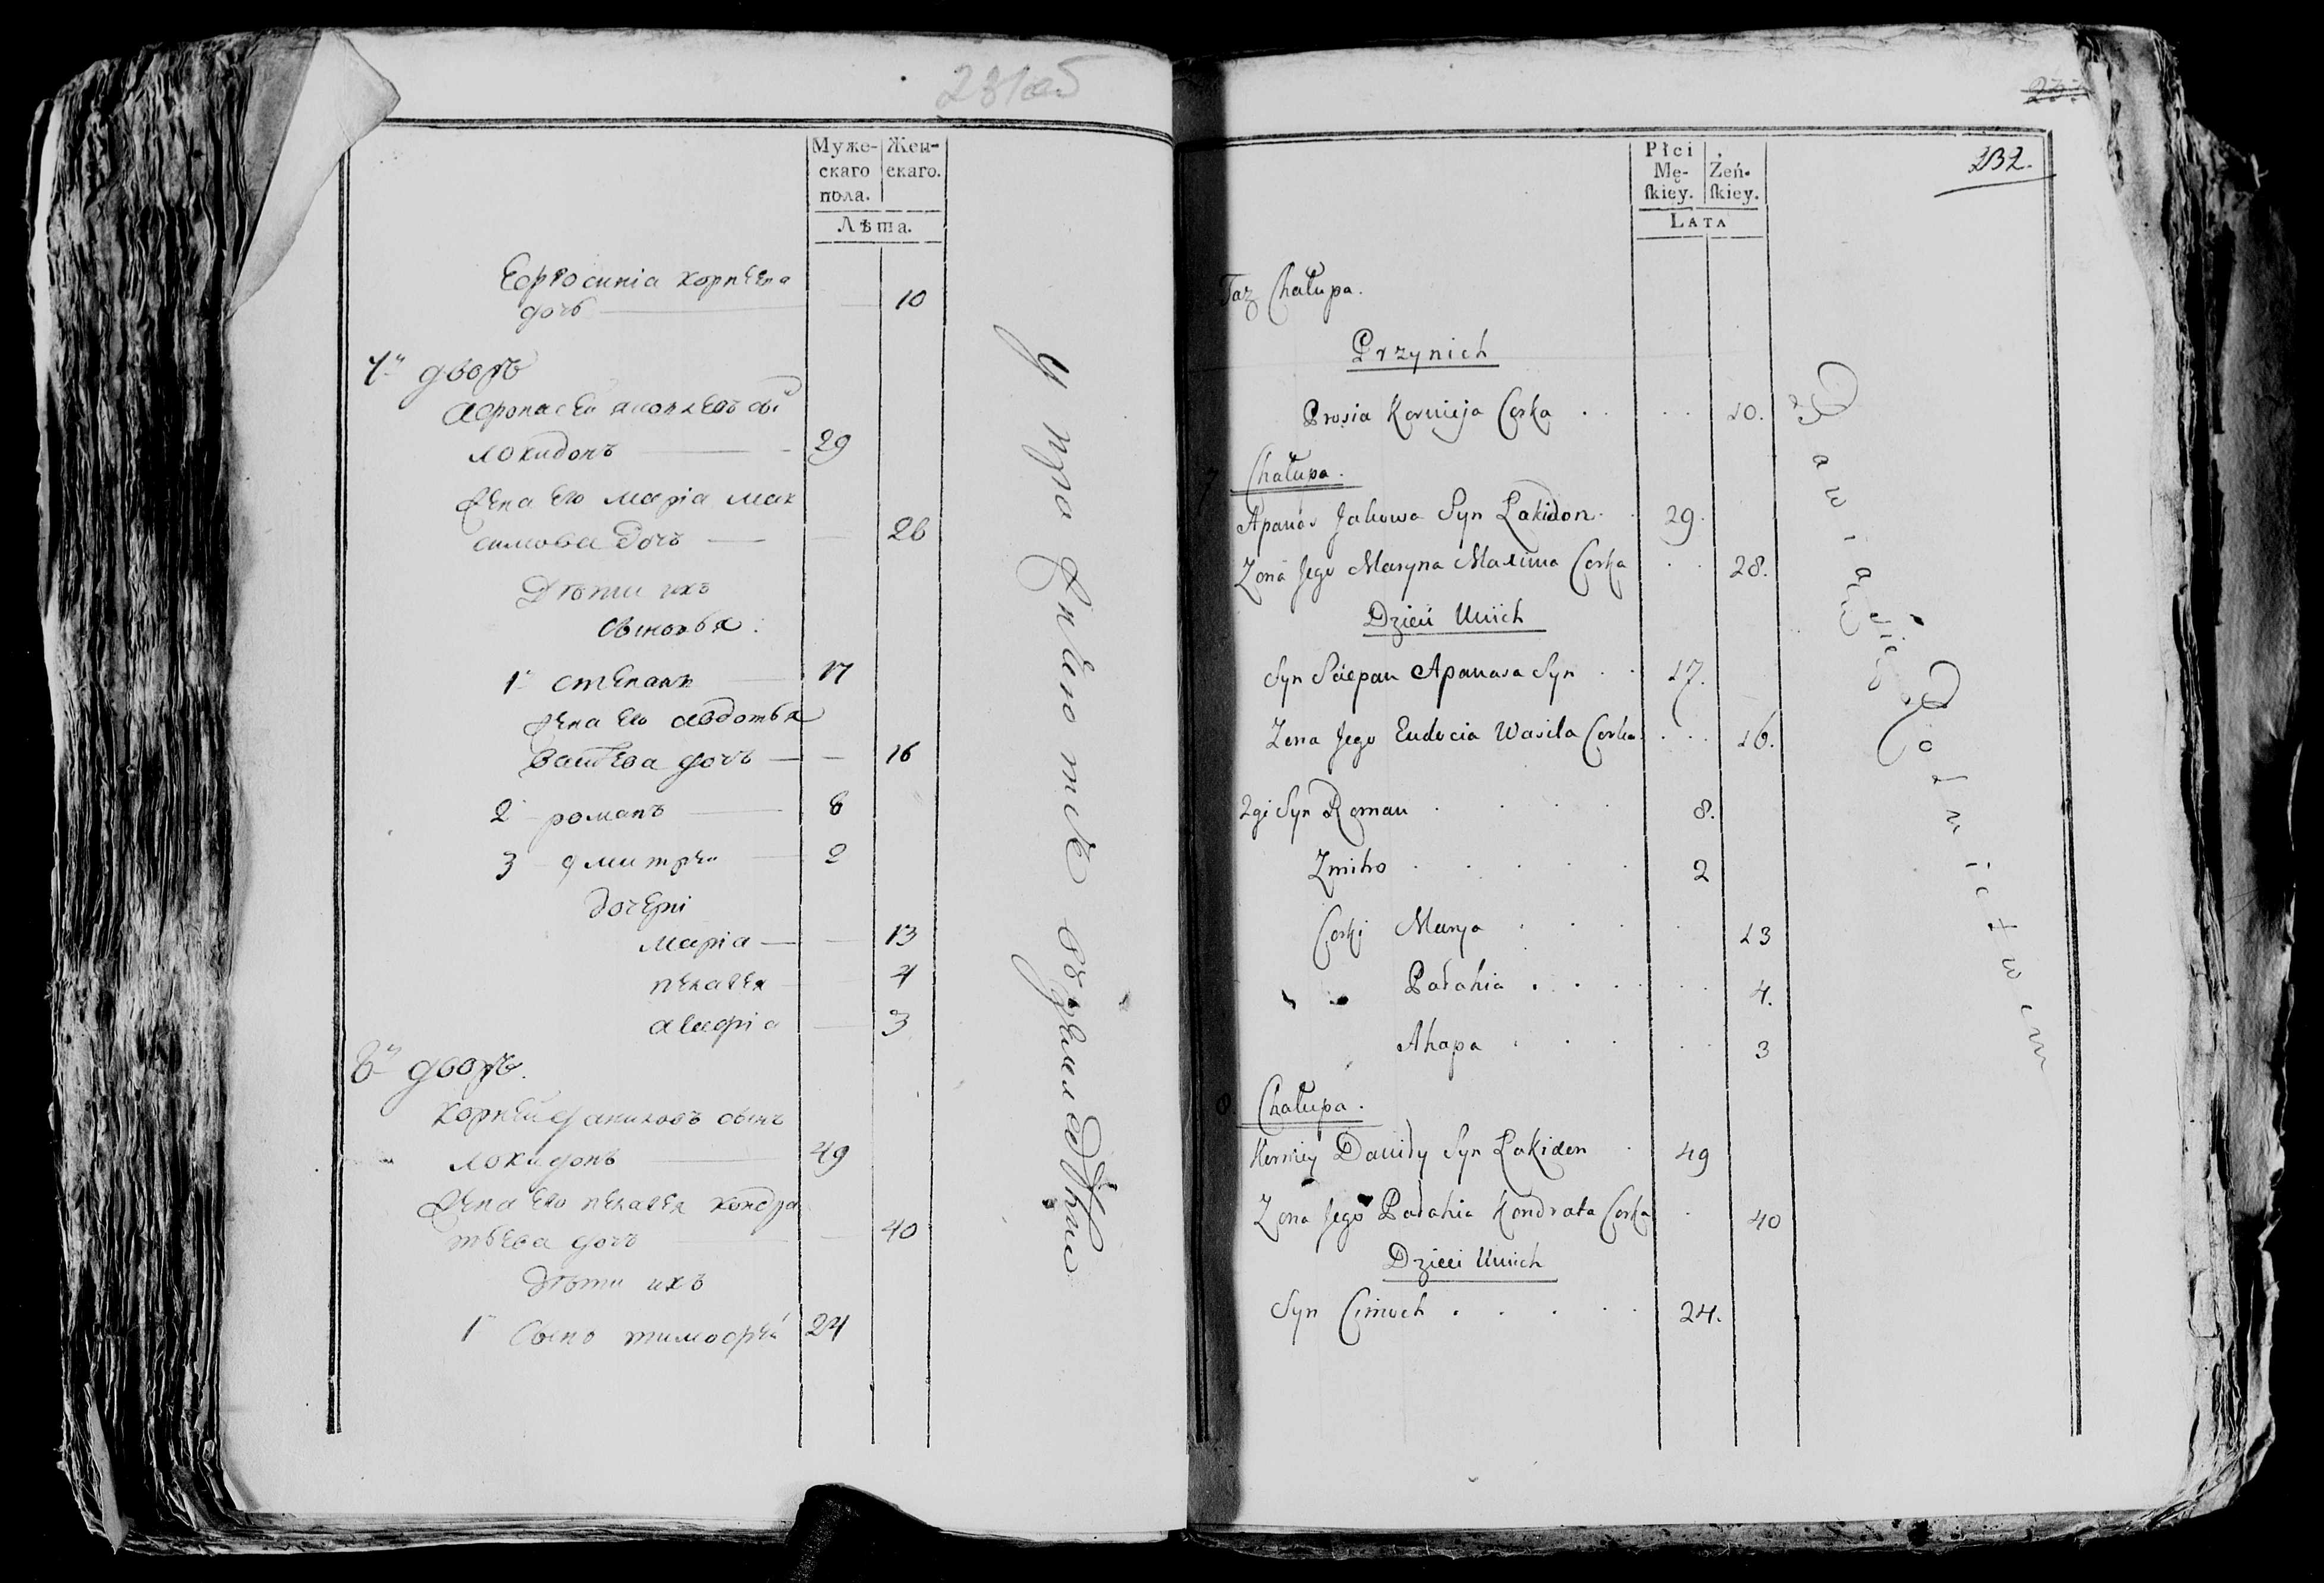 231об
Муже-
скаго
пола.
Жен-
скаго.
Лѣта.
Ефросинія корнѣева
дочь 10
7й дворъ
Афонасей яковлевъ сы
локидонъ 29
жена его марія мак
симова дочь 26
Дѣти ихъ
сыновья:
1й степанъ 17
жена его авдотья
дочь 16
2 романъ 8
3 дмитрей 2
дочери
марія 13
пелагея 4
агафія 3
8й дворъ.
корней даниловъ сынъ
локидонъ 49
жена его пелагея кондра
тьева дочь 40
Дѣти ихъ
1й Сынъ тимофей 24
упражняютсѣ въ земледѣліи
232.
Płci
Mę-
ſkiey.
Żeń-
ſkiey.
LATA
Taż Chałupa.
Przynich
Prosia Kornieja Corka 10.
7 Chałupa.
Apanas Jakowa Syn Łakidon 29.
Zona Jego Maryna Maxima Corka 28.
Dzieci Unich
Syn Sciepan Apanasa Syn 17.
Zona Jego Eudocia Wasila Corka 16.
2gi Syn Roman 8.
Zmitro 2
Corki Marya 13
" " Pałahia 4.
Ahapa 3
8. Chałupa.
Korniey Daniły Syn Łakidon 49
Zona Jego Pałahia Kondrata Corka 40
Dzieci Unich
Syn Cimoch 24.
Bawią się Rolnictwem